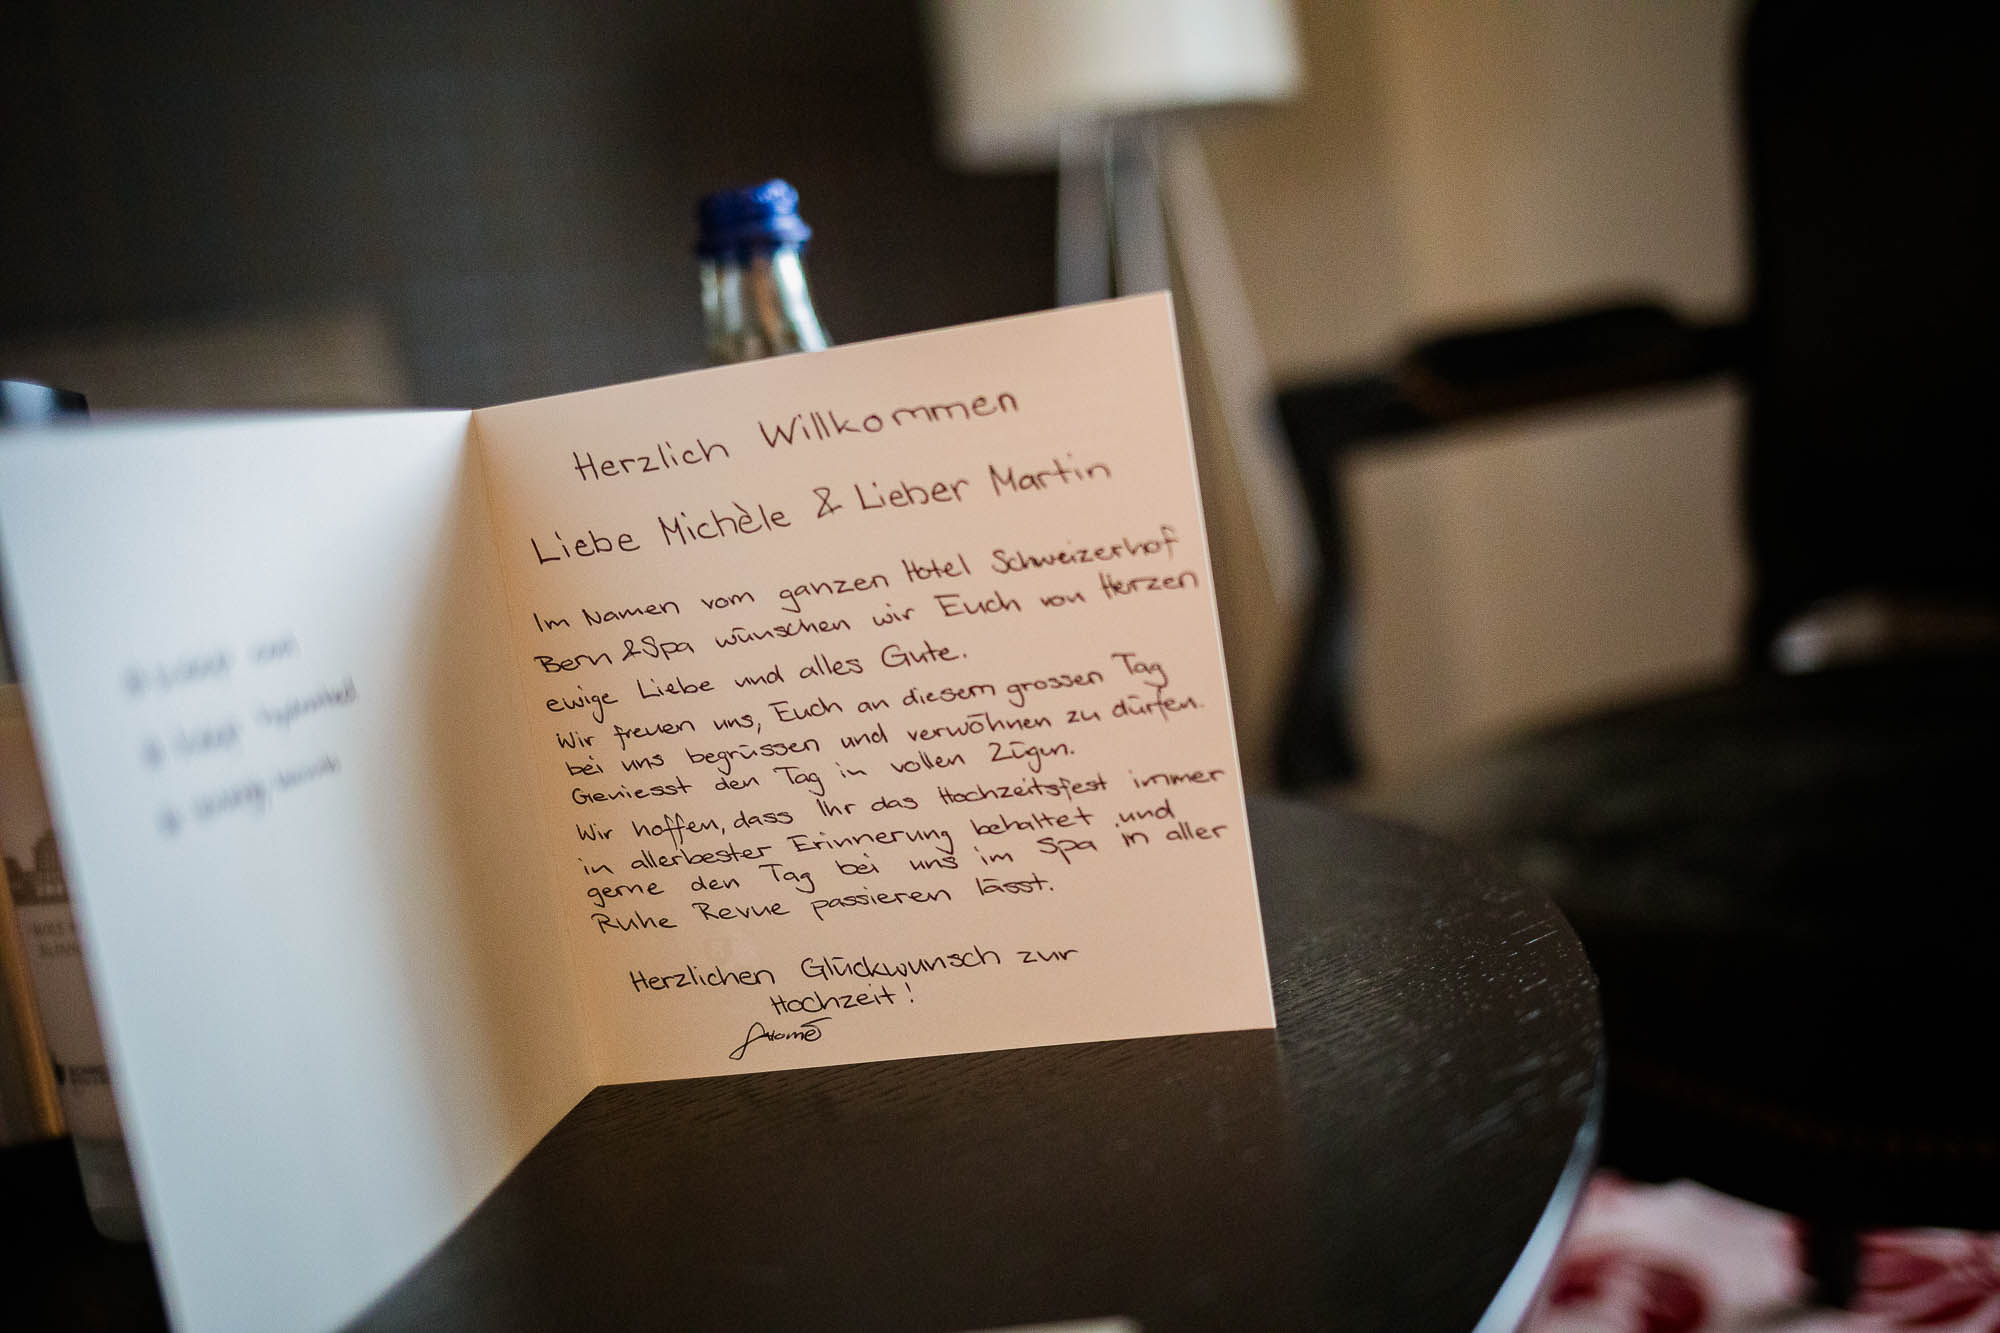 Herzlich Willkommen
Liebe Michèle & Lieber Martin
Im Namen vom ganzen Hotel Schweizerhof
Bern & Spa wünschen wir Euch von Herzen
ewige Liebe und alles Gute.
Wir freuen uns, Euch an diesem grossen Tag
bei uns begrüssen und verwöhnen zu dürfen.
Geniesst den Tag in vollen Zügen.
Wir hoffen, dass Ihr das Hochzeitsfest immer
in allerbester Erinnerung behaltet und
gerne den Tag bei uns im Spa in aller
Ruhe Revue passieren lässt.
Herzlichen Glückwunsch zur
Hochzeit!